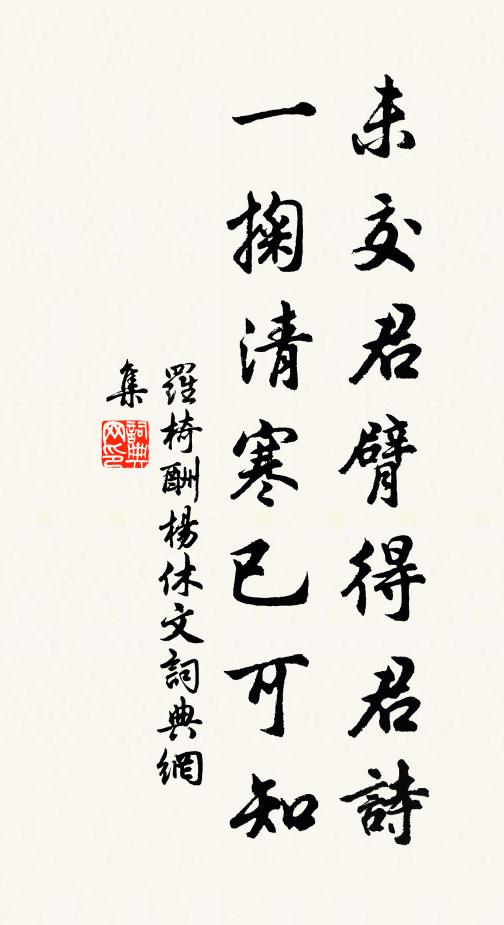 未交君臂得君詩
一掬清寒已可知
羅椅酬楊休文詞典網
集
詞典
网印